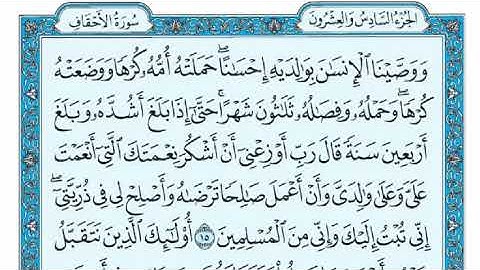 الجزء السادس والعشرون
سورة الأحقاف
وَوَصَّيْنَا الْإِنسَٰنَ بِوَٰلِدَيْهِ إِحْسَٰنًا ۖ حَمَلَتْهُ أُمُّهُۥ كُرْهًا وَوَضَعَتْهُ
كُرْهًا ۖ وَحَمْلُهُۥ وَفِصَٰلُهُۥ ثَلَٰثُونَ شَهْرًا ۚ حَتَّىٰٓ إِذَا بَلَغَ أَشُدَّهُۥ وَبَلَغَ
أَرْبَعِينَ سَنَةً قَالَ رَبِّ أَوْزِعْنِىٓ أَنْ أَشْكُرَ نِعْمَتَكَ الَّتِىٓ أَنْعَمْتَ
عَلَىَّ وَعَلَىٰ وَٰلِدَىَّ وَأَنْ أَعْمَلَ صَٰلِحًا تَرْضَىٰهُ وَأَصْلِحْ لِى فِى ذُرِّيَّتِىٓ ۖ
إِنِّى تُبْتُ إِلَيْكَ وَإِنِّى مِنَ الْمُسْلِمِينَ ١٥ أُو۟لَٰٓئِكَ الَّذِينَ نَتَقَبَّلُ